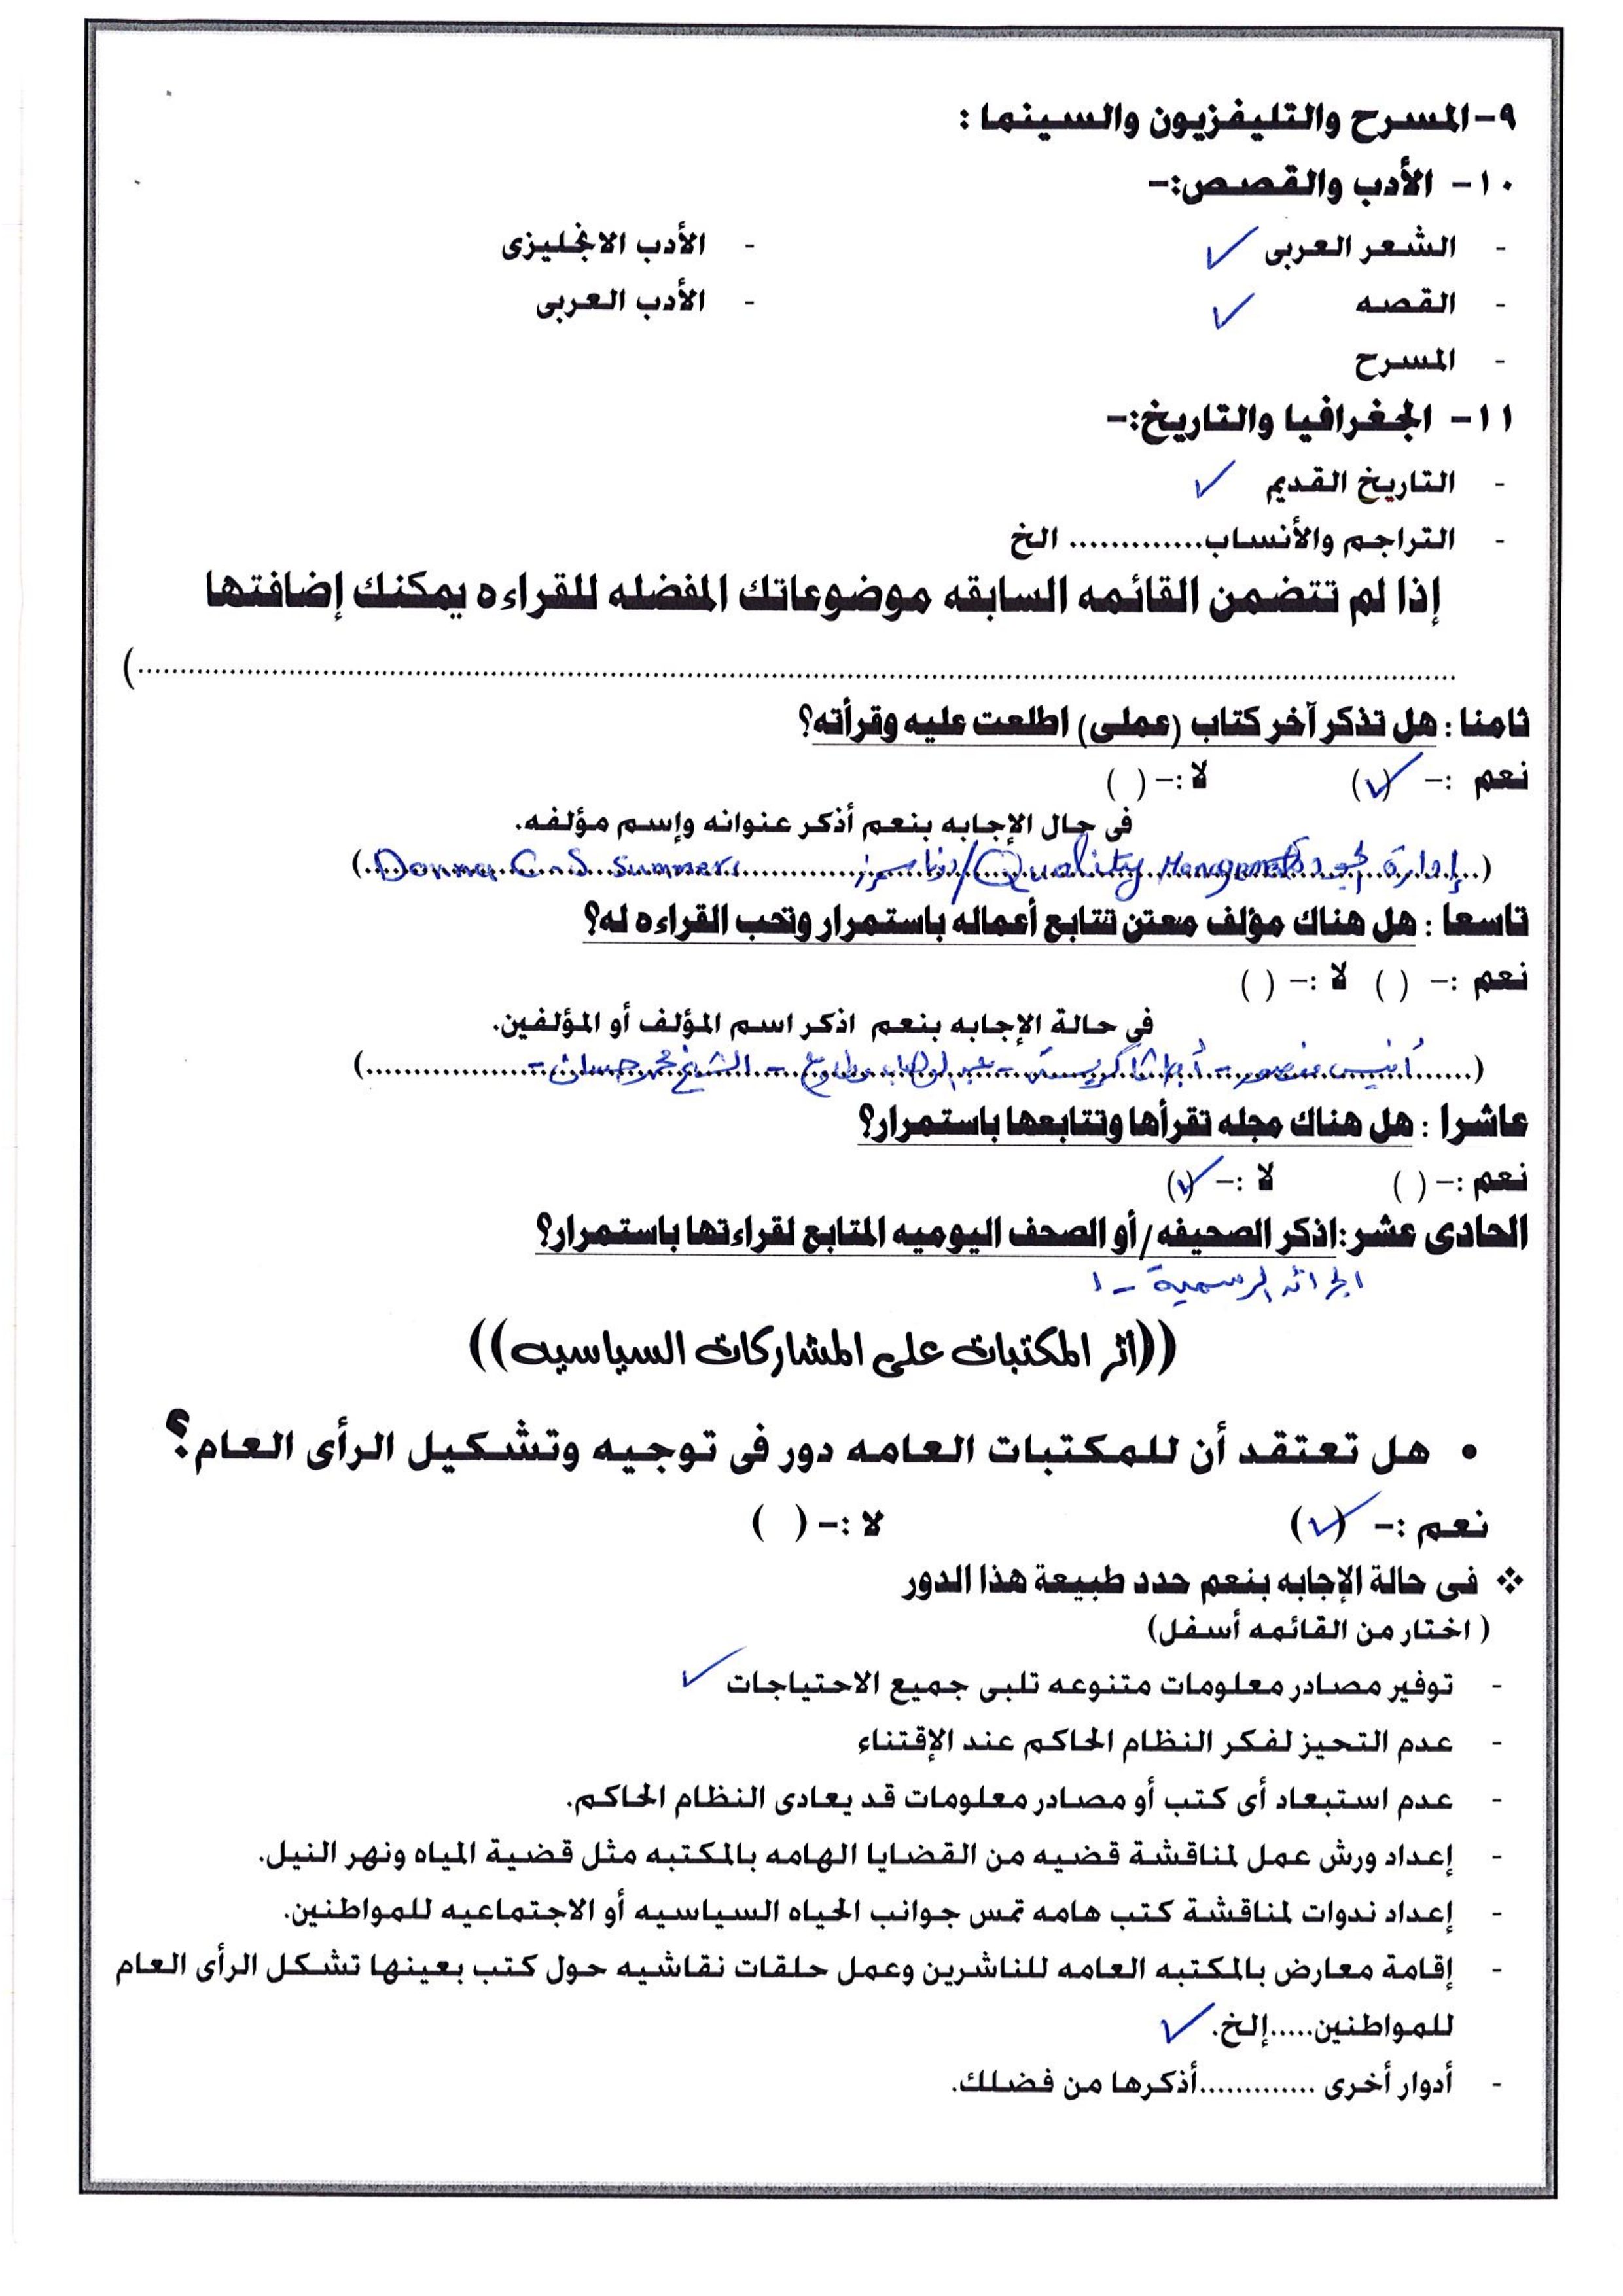 ٩-المسرح والتليفزيون والسينما :
١٠- الأدب والقصص:-
- الشعر العربى ✓ - الأدب الانجليزى
- القصه ✓ - الأدب العربى
- المسرح
١١- الجغرافيا والتاريخ:-
- التاريخ القديم ✓
- التراجم والأنساب............. الخ
إذا لم تتضمن القائمه السابقه موضوعاتك المفضله للقراءه يمكنك إضافتها
....................................................................................................)
ثامنا : هل تذكر آخر كتاب (عملى) اطلعت عليه وقرأته؟
نعم :- (✓) لا :- ( )
فى حال الإجابه بنعم أذكر عنوانه وإسم مؤلفه.
(..إدارة الجودة Quality Management/دونا سمرز.......Donna C. S. Summers..)
تاسعا : هل هناك مؤلف معتن تتابع أعماله باستمرار وتحب القراءه له؟
نعم :- ( ) لا :- ( )
فى حالة الإجابه بنعم اذكر اسم المؤلف أو المؤلفين.
(......أنيس منصور - أجاثا كريستى - عبد الوهاب مطاوع - الشيخ محمد حسان -.................)
عاشرا : هل هناك مجله تقرأها وتتابعها باستمرار؟
نعم :- ( ) لا :- (✓)
الحادى عشر:اذكر الصحيفه/أو الصحف اليوميه المتابع لقراءتها باستمرار؟
الجرائد الرسمية - ١
((أثر المكتبات على المشاركات السياسيه))
• هل تعتقد أن للمكتبات العامه دور فى توجيه وتشكيل الرأى العام؟
نعم :- (✓) لا :- ( )
❖ فى حالة الإجابه بنعم حدد طبيعة هذا الدور
( اختار من القائمه أسفل)
- توفير مصادر معلومات متنوعه تلبى جميع الاحتياجات ✓
- عدم التحيز لفكر النظام الحاكم عند الإقتناء
- عدم استبعاد أى كتب أو مصادر معلومات قد يعادى النظام الحاكم.
- إعداد ورش عمل لمناقشة قضيه من القضايا الهامه بالمكتبه مثل قضية المياه ونهر النيل.
- إعداد ندوات لمناقشة كتب هامه تمس جوانب الحياه السياسيه أو الاجتماعيه للمواطنين.
- إقامة معارض بالمكتبه العامه للناشرين وعمل حلقات نقاشيه حول كتب بعينها تشكل الرأى العام
للمواطنين.....إلخ. ✓
- أدوار أخرى .............أذكرها من فضلك.